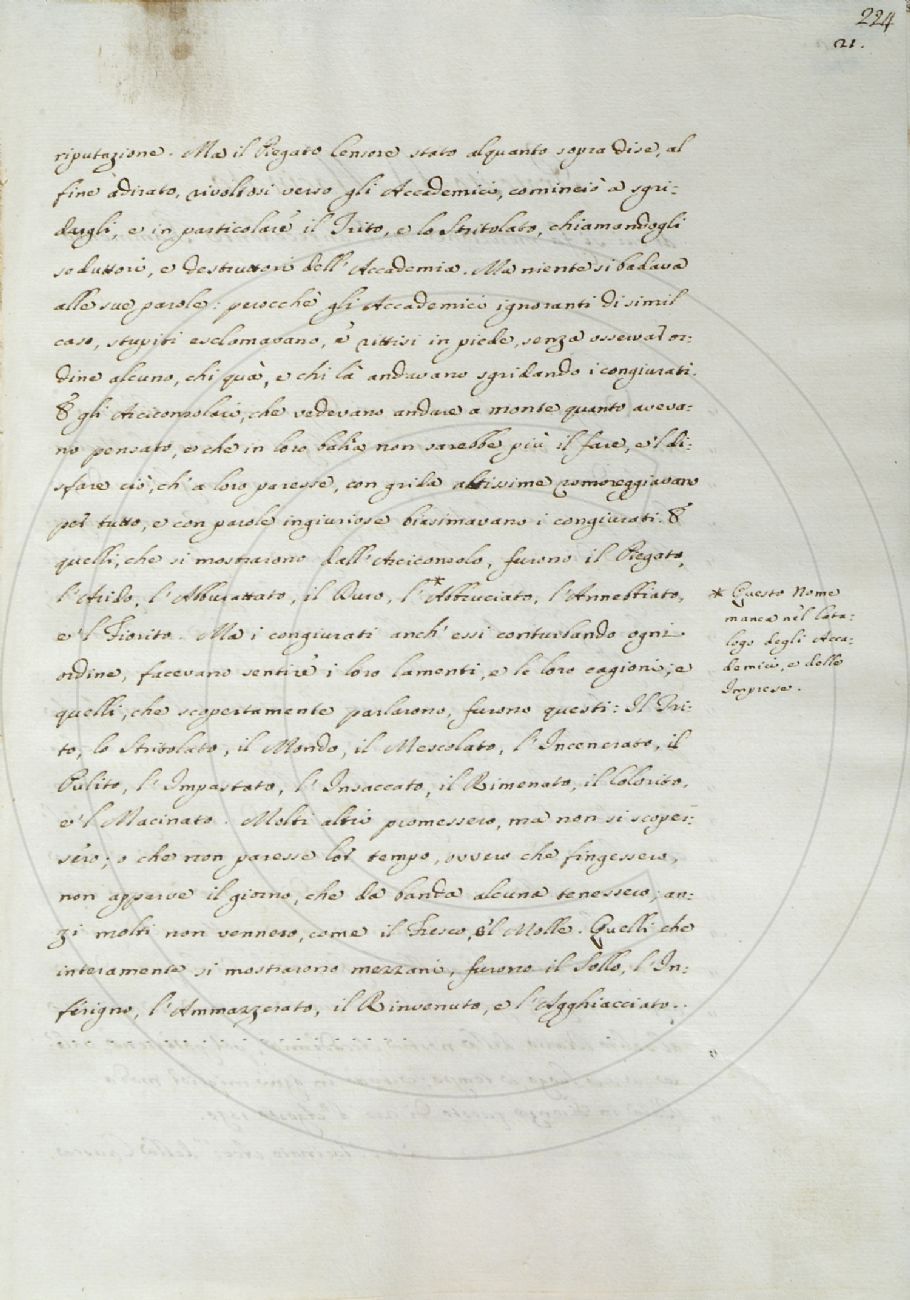 224
21.
riputazione. Ma il Piegato Censore stato alquanto sopra di se, al
fine adirato, rivoltosi verso gli Accademici, cominciò a sgri-
dargli, e in particolare il Trito, e lo Stritolato, chiamandogli
seduttori, e destruttori dell' Accademia. Ma niente si badava
alle sue parole: perocchè gli Accademici ignoranti di simil
caso, stupiti esclamavano, e rittisi in piede, senza osservar or-
dine alcuno, chi quà, e chi là andavano sgridando i congiurati.
E gli Arciconsolari, che vedevano andare a monte quanto aveva-
no pensato, e che in loro balìa non sarebbe più il fare, e 'l di-
sfare ciò, ch' a loro paresse, con grida altissime romoreggiavano
per tutto, e con parole ingiuriose biasimavano i congiurati. E
quelli, che si mostrarono dall' Arciconsolo, furono il Piegato,
l' Arido, l' Abburattato, il Duro, l' *Abbruciato, l' Annebbiato,
e 'l Fiorito. Ma i congiurati anch' essi conturbando ogni
ordine, facevano sentire i loro lamenti, e le loro cagioni; e
quelli, che scopertamente parlarono, furono questi: Il Tri-
to, lo Stritolato, il Mondo, il Mescolato, l' Incenerato, il
Pulito, l' Impastato, l' Insaccato, il Rimenato, il Colorito,
e 'l Macinato. Molti altri promessero, ma non si scoper-
sero; o che non paresse lor tempo, ovvero che fingessero,
non apparve il giorno, che da banda alcuna tenessero; an-
zi molti non vennero, come il Fresco, e 'l Molle. Quelli che
interamente si mostrarono mezzani, furono il Sollo, l' In-
ferigno, l' Ammazzerato, il Rinvenuto, e l' Agghiacciato.
* Questo Nome
manca nel Cata-
logo degli Acca-
demici, e delle
Imprese.